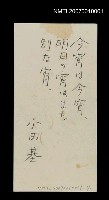 NMTL20070040001
今宵は今宵、
明日の宵はまた
別な宵。